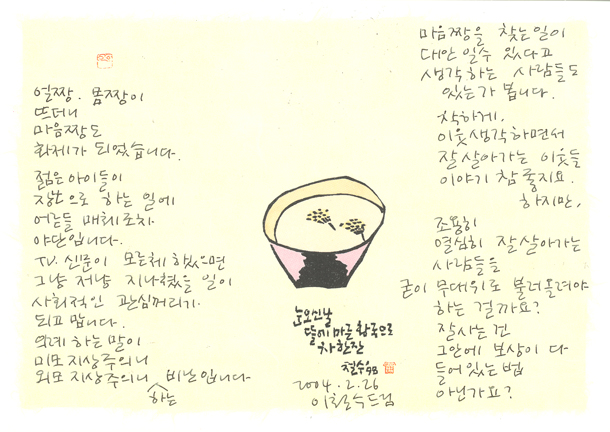 얼짱. 몸짱이
뜨더니
마음짱도
화제가 되었습니다.
젊은아이들이
장난으로 하는 일에
어른들 매체조차
야단입니다.
TV. 신문이 모른체 했으면
그냥 저냥 지나쳤을 일이
사회적인 관심꺼리가
되고 맙니다.
으레 하는 말이
미모지상주의니
외모지상주의니 하는 비난입니다
눈오신날
뜰에 마른 황국으로
차 한잔
철수 98
2004. 2. 26
이철수드림
마음짱을 찾는 일이
대안 일수 있다고
생각하는 사람들도
있는가 봅니다.
착하게,
이웃생각하면서
잘 살아가는 이웃들
이야기 참 좋지요.
하지만,
조용히
열심히 잘 살아가는
사람들을
굳이 무대위로 불러올려야
하는 걸까요?
잘사는건
그안에 보상이 다
들어있는 법
아닌가요?